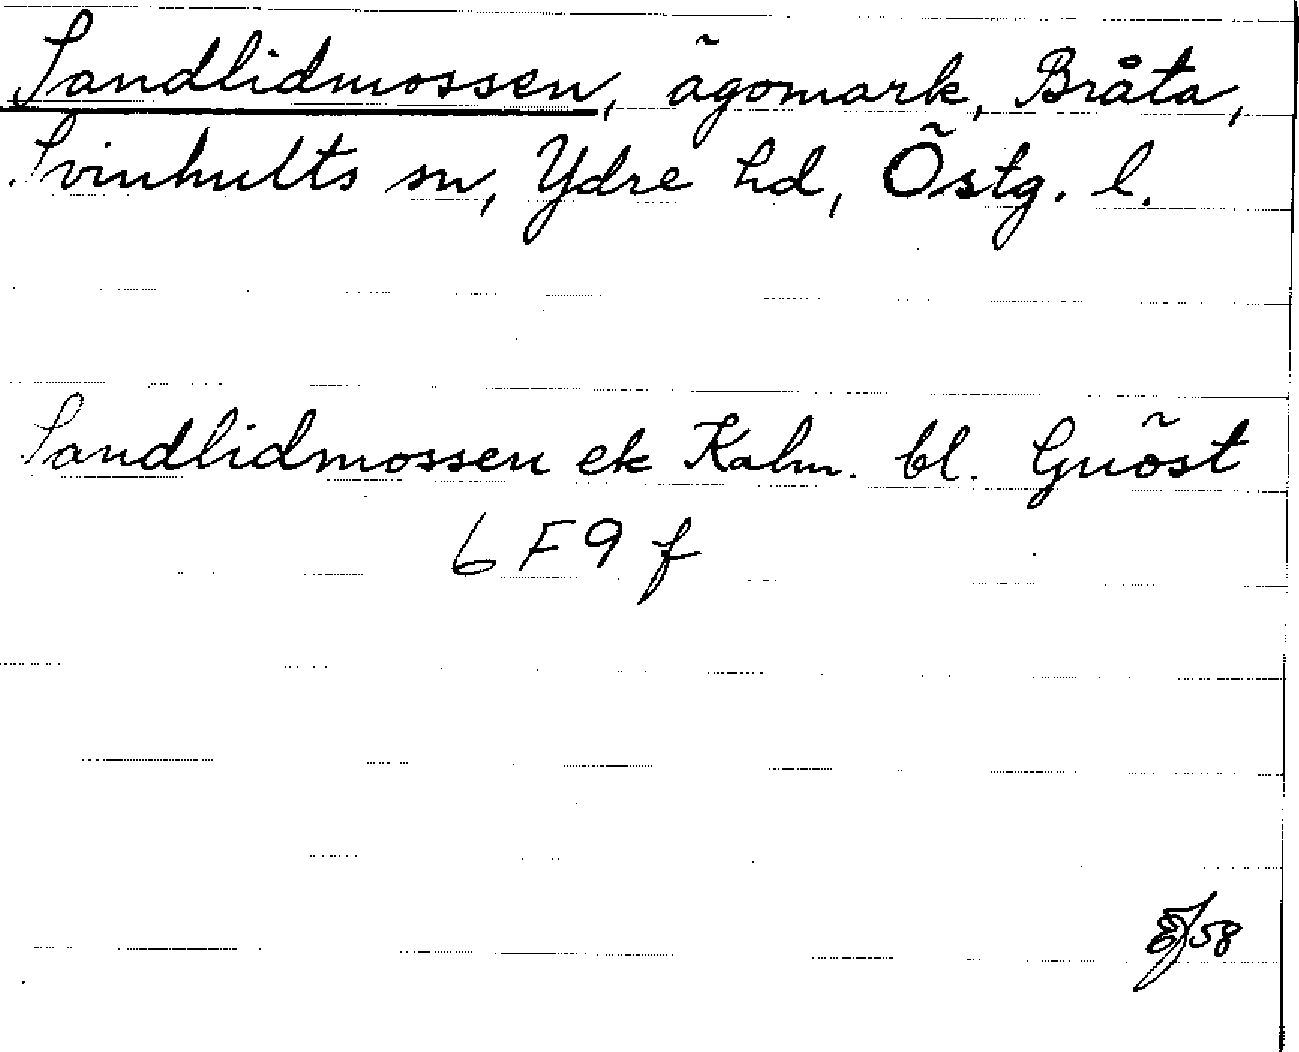 Sandlidmossen, ägomark, Bråta,
Svinhults sn, Ydre hd, Östg. l.
Sandlidmossen ek Kalm. bl. Gnöst
6 F 9 f
58